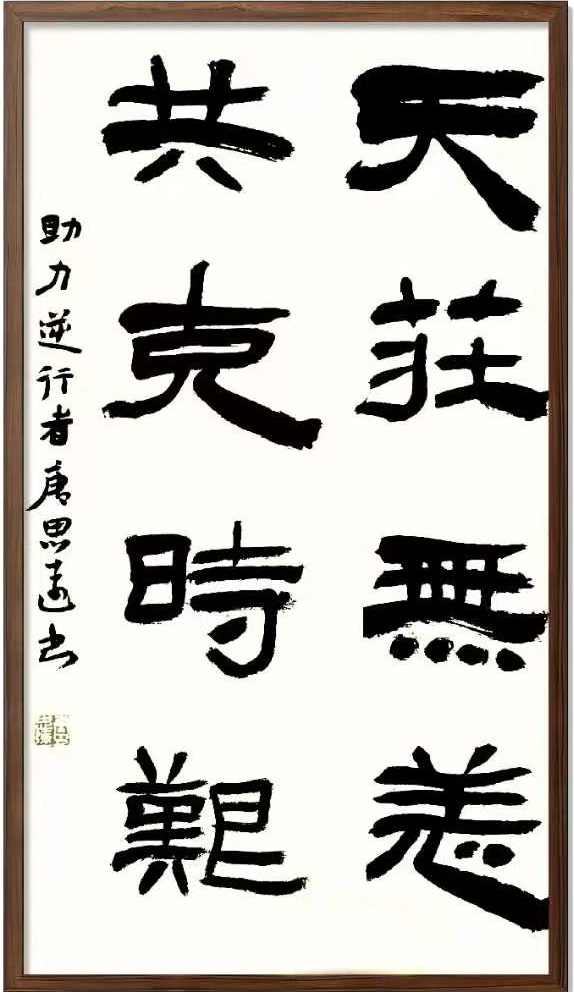 天莊無恙
共克時艱
助力逆行者唐思遠书